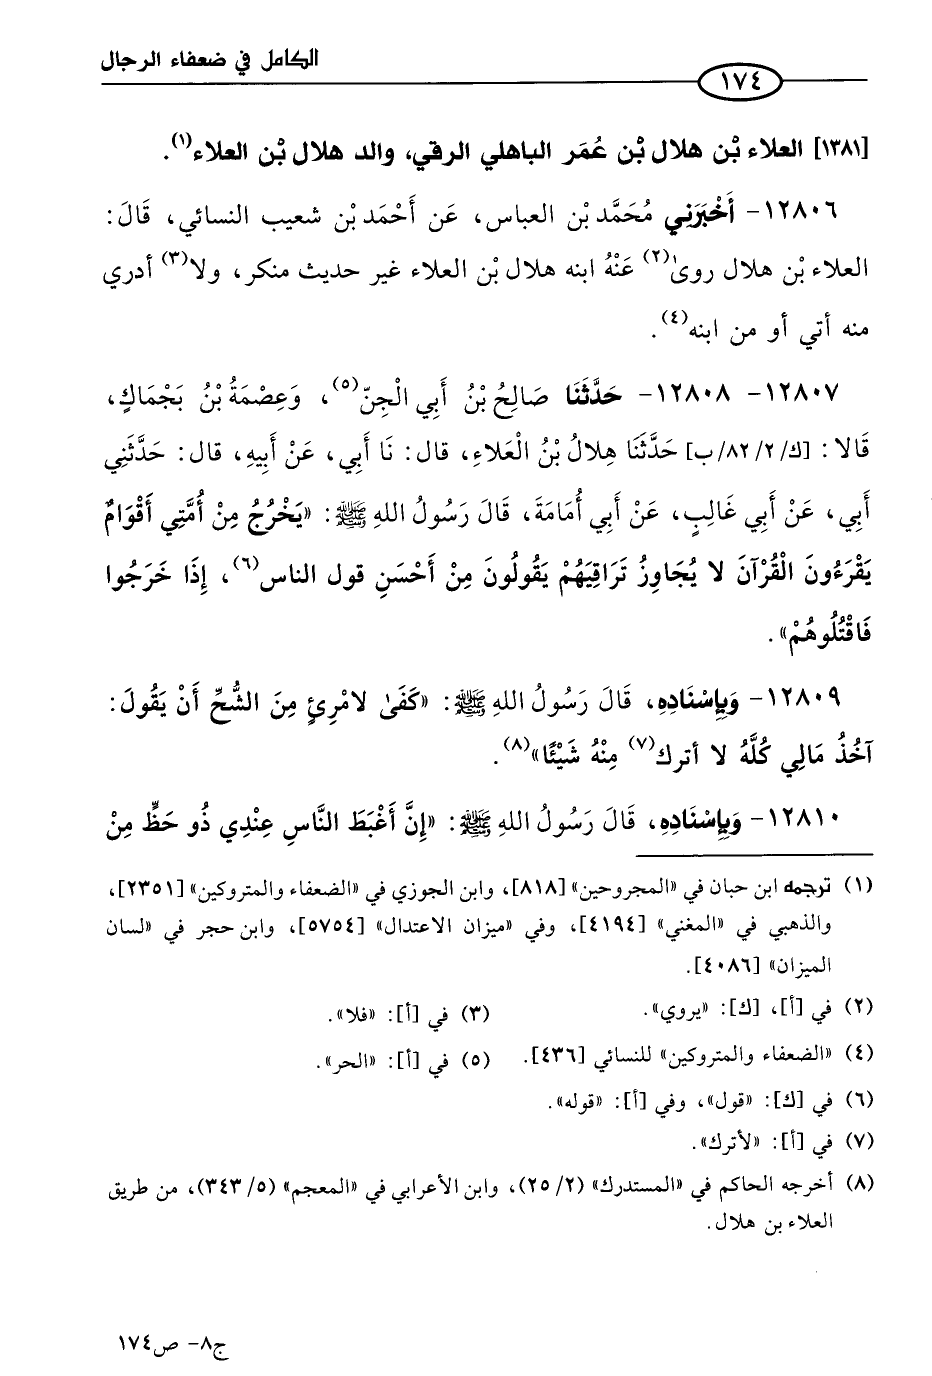 الكامل في ضعفاء الرجال
١٧٤
[١٣٨١] العلاء بْن هلال بْن عُمَر الباهلي الرقي، والد هلال بْن العلاء(١).
١٢٨٠٦- أَخْبَرَنِي مُحَمَّد بْن العباس، عَن أَحْمَد بْن شعيب النسائي، قَالَ:
العلاء بْن هلال روىٰ(٢) عَنْهُ ابنه هلال بْن العلاء غير حديث منكر، ولا(٣) أدري
منه أتي أو من ابنه(٤).
١٢٨٠٧- ١٢٨٠٨- حَدَّثَنَا صَالِحُ بْنُ أَبِي الْجِنّ(٥)، وَعِصْمَةُ بْنُ بَجْمَاكٍ،
قَالا: [ك/ ٢/ ٨٢/ ب] حَدَّثَنَا هِلالُ بْنُ الْعَلاءِ، قال: نَا أَبِي، عَنْ أَبِيهِ، قال: حَدَّثَنِي
أَبِي، عَنْ أَبِي غَالِبٍ، عَنْ أَبِي أُمَامَةَ، قَالَ رَسُولُ اللهِ ﷺ: «يَخْرُجُ مِنْ أُمَّتِي أَقْوَامٌ
يَقْرَءُونَ الْقُرْآنَ لا يُجَاوِزُ تَرَاقِيَهُمْ يَقُولُونَ مِنْ أَحْسَنِ قول الناس(٦)، إِذَا خَرَجُوا
فَاقْتُلُوهُمْ».
١٢٨٠٩- وَبِإِسْنَادِهِ، قَالَ رَسُولُ اللهِ ﷺ: «كَفَىٰ لامْرِئٍ مِنَ الشُّحِّ أَنْ يَقُولَ:
آخُذُ مَالِي كُلَّهُ لا أترك(٧) مِنْهُ شَيْئًا»(٨).
١٢٨١٠- وَبِإِسْنَادِهِ، قَالَ رَسُولُ اللهِ ﷺ: «إِنَّ أَغْبَطَ النَّاسِ عِنْدِي ذُو حَظٍّ مِنْ
(١) ترجمه ابن حبان في «المجروحين» [٨١٨]، وابن الجوزي في «الضعفاء والمتروكين» [٢٣٥١]،
والذهبي في «المغني» [٤١٩٤]، وفي «ميزان الاعتدال» [٥٧٥٤]، وابن حجر في «لسان
الميزان» [٤٠٨٦].
(٢) في [أ]، [ك]: «يروي». (٣) في [أ]: «فلا».
(٤) «الضعفاء والمتروكين» للنسائي [٤٣٦]. (٥) في [أ]: «الحر».
(٦) في [ك]: «قول»، وفي [أ]: «قوله».
(٧) في [أ]: «لأترك».
(٨) أخرجه الحاكم في «المستدرك» (٢/ ٢٥)، وابن الأعرابي في «المعجم» (٥/ ٣٤٣)، من طريق
العلاء بن هلال.
ج٨- ص١٧٤